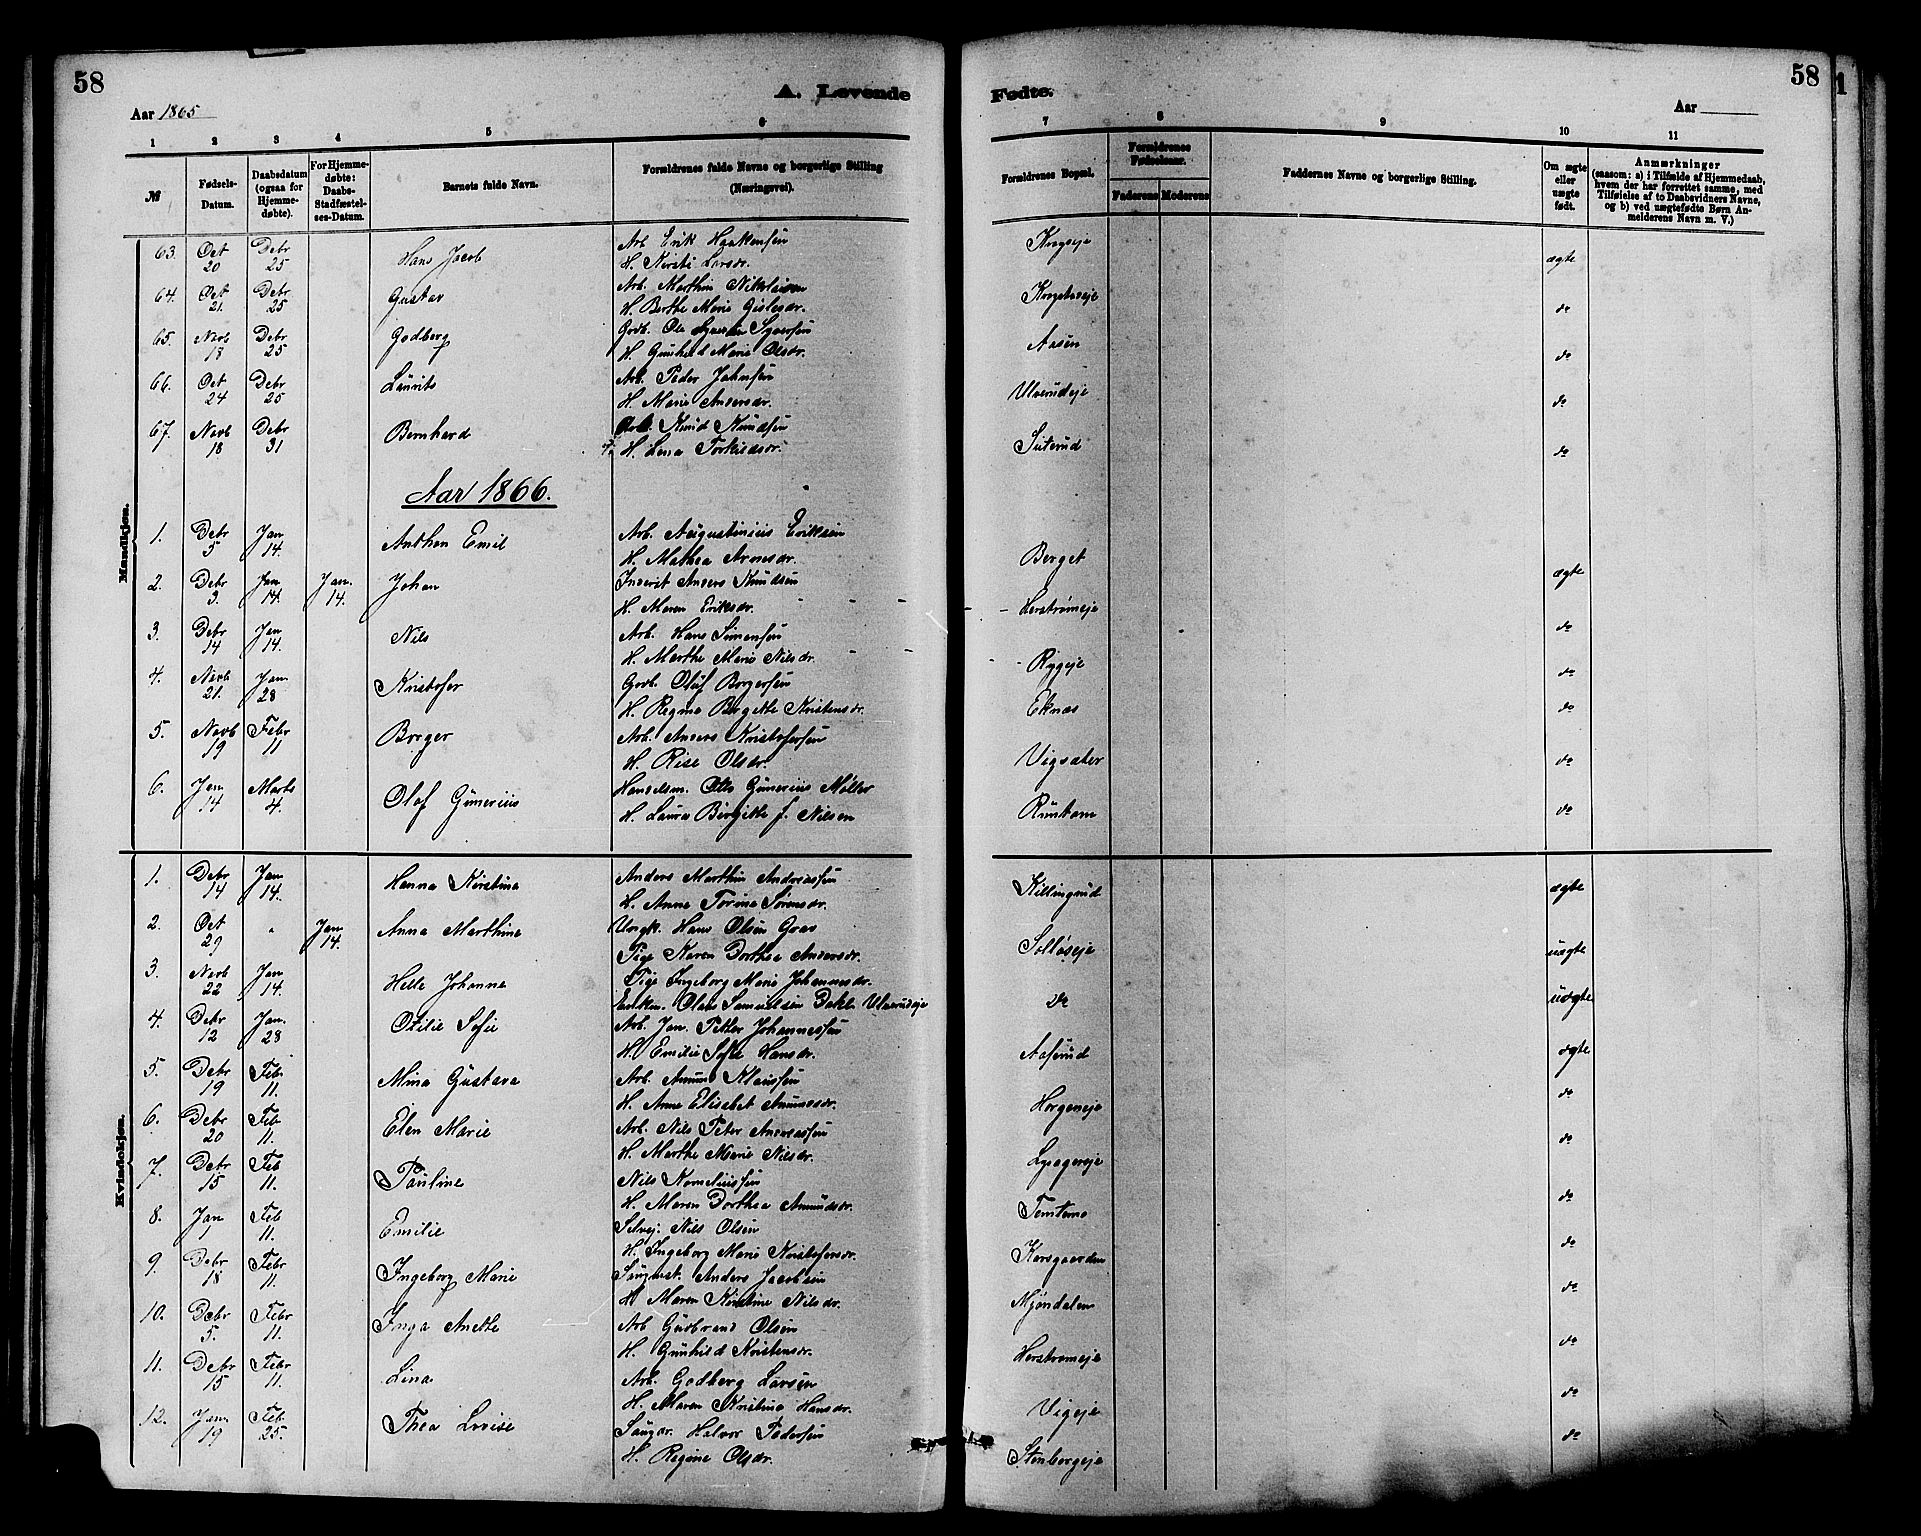 58
Aar 1865
A. Levende
1 2 3 4 5 6
№
Fødsels-Datum.
Daabsdatum (ogsaa for Hjemme-døbte).
For Hjemme-døbte: Daabs-Stadfæstel-ses-Datum.
Barnets fulde Navn.
Forældrenes fulde Navne og borgerlige Stilling (Næringsvei).
Fødte.
58
Aar
7 8 9 10 11
Forældrenes Bopæl.
Forældrenes Fødselsaar.
Faderens Moderens
Faddernes Navne og borgerlige Stilling.
Om ægte eller uægte født.
Anmærkninger
(saasom: a) i Tilfælde af Hjemmedaab, hvem der har forrettet samme, med Tilføielse af to Daabsvidners Navne, og b) ved uægtefødte Børn An-melderens Navn m. V.)
Mandkjøn.
63. Oct 20 Debr 25 Hans Jacob Arb Erik Haakensen Krogseje ægte
H. Kirsti Larsdr.
64. Oct 21. Debr 25 Gustav Arb. Marthin Nikolaisen do
H. Berthe Marie Gislesdr.
65. Novb 18 Debr 25 Godberg Grdb. Ole Syversen Aasen do
H. Gunhild Marie Olsdr.
66. Oct 24 Debr 25 Laurits Arb. Peder Johnsen Ulverudeje do
H. Marie Andersdr.
67. Novb 18 Debr 31 Bernhard Arb. Knud Knudsen Suterud do
H. Lena Torkildsdr.
Aar 1866.
1. Debr 5 Jan 14. Anthon Emil Arb. Augustinius Eriksen Berget ægte
H. Mathea Arnesdr.
2. Debr 3. Jan 14. Jan. 14. Johan Inderst Anders Knudsen Herstrømeje do
H. Maren Eriksdr.
3. Debr 14 Jan 14. Nils Arb. Hans Simensen Ryggeje do
H. Marthe Marie Nilsdr.
4. Novb 21. Jan 28 Kristofer Grdb. Oluf Borgersen Eknæs do
H. Regine Birgitte Kristensdr.
5. Novb 19 Febr 11 Borger Arb. Anders Kristofersen Vigsæter do
H. Rise Olsdr.
6. Jan 14 Marts 4. Olaf Gunerius Handelsm. Otto Gunerius Møller do
H. Laura Bergitte f. Nilsen
Kvindekjøn.
1. Debr 14 Jan 14. Hanna Kirstina Anders Marthin Andreassen Killingrud ægte
H. Anne Torine Sørensdr.
2. Oct 29 " Jan 14. Anna Marthine Ungk. Hans Olsen Solløseje uægte
Pige Karen Dorthea Andersdr.
3. Novb 22 Jan 14. Helle Johanne Pige Ingeborg Marie Johannesdr. do uægte
Enkem. Olaus Samuelsen Ulverudeje
4. Debr 12 Jan. 28 Otilie Sofie Arb. Jan Petter Johannessen Aaserud ægte
H. Emilie Sofie Hansdr.
5. Debr 19 Feb 11. Mina Gustava Arb. Amund Klaussen Horgeneje do
H. Anne Elisabet Amundsdr.
6. Debr 20 Feb 11. Elen Marie Arb. Nils Peter Andreassen do
H. Marthe Marie Nilsdr.
7. Debr 15 Feb 11. Pauline Nils Korneliussen do
H. Maren Dorthea Amundsdr.
8. Jan 1 Feb 11. Emilie Selvej. Nils Olsen Korsgaarden do
H. Ingeborg Marie Kristofersdr.
9. Debr 18 Febr 11. Ingeborg Marie Anders Jacobsen Mjøndalen do
H. Maren Kirstine Nilsdr.
10. Debr 5. Febr 11. Inga Anette Arb Gudbrand Olsen Herstrømeje do
H. Gunhild Kristensdr.
11. Debr 15 Febr 11. Lina Arb. Godberg Larsen Vigeje do
H. Maren Kristine Hansdr.
12. Jan. 19 Feb 25. Thea Lovise Halvor Pedersen Stenbergeje do
H. Regine Olsdr.